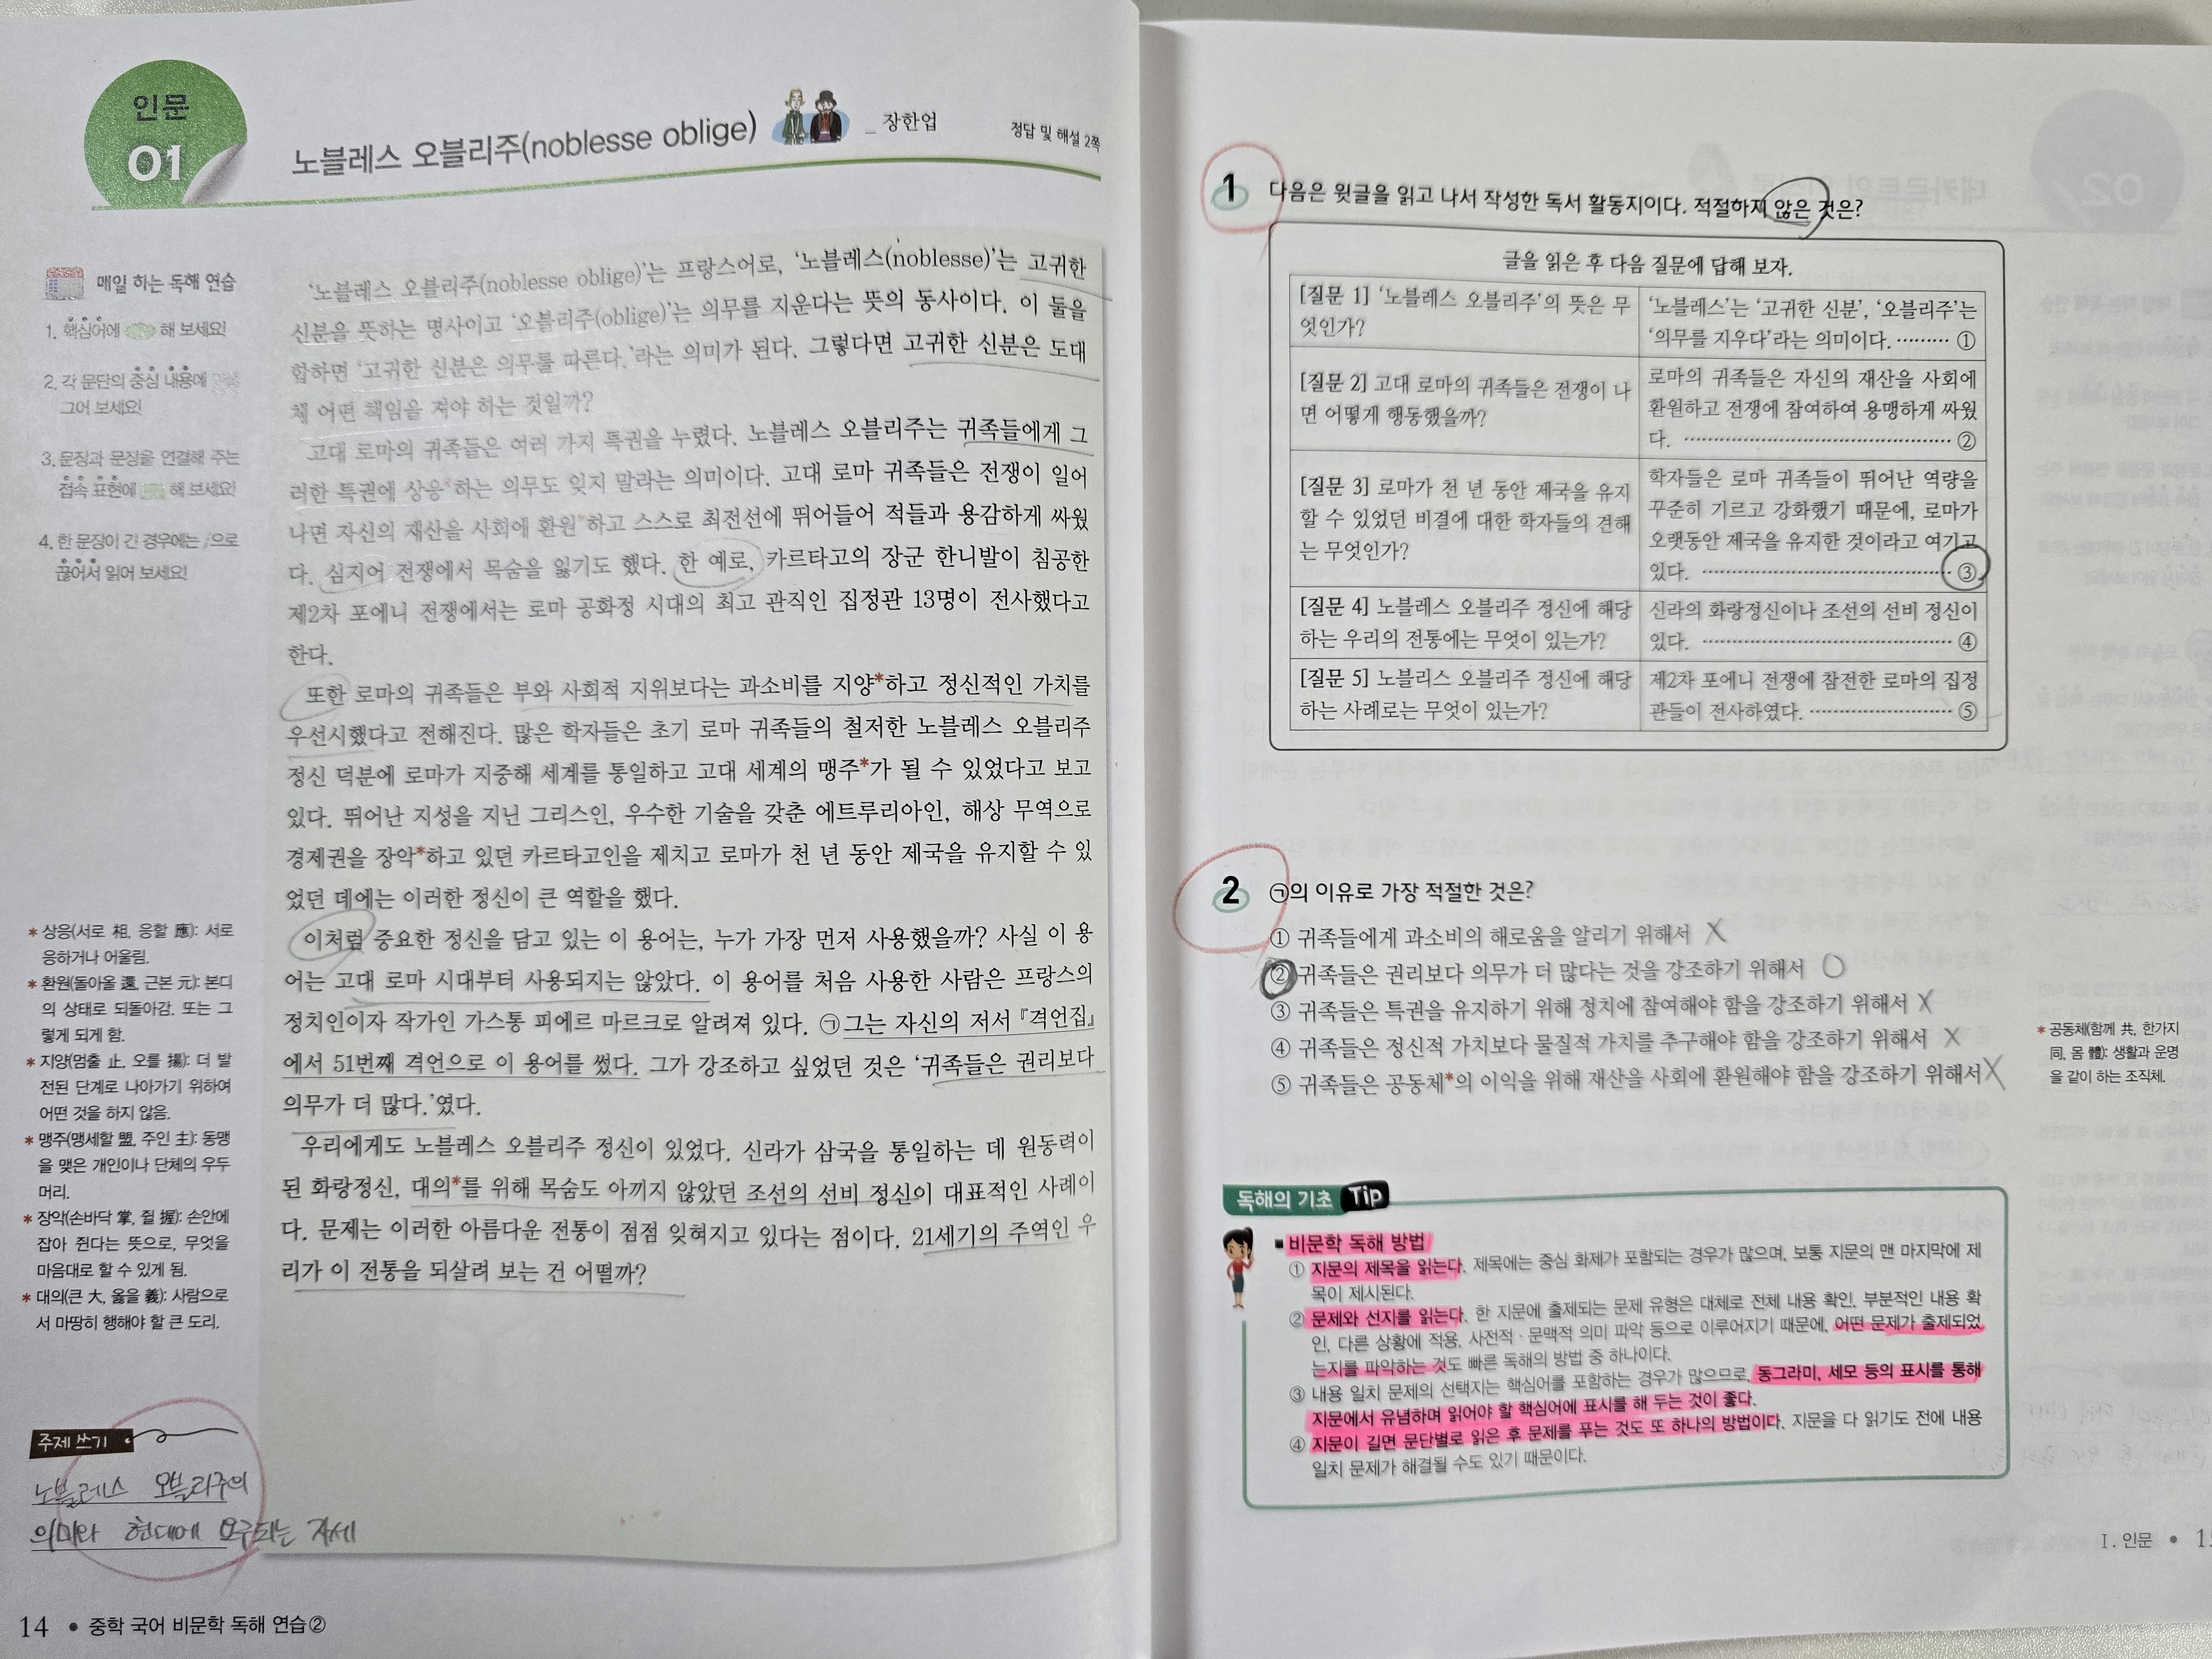 인문
01
노블레스 오블리주(noblesse oblige)
_ 장한업
정답 및 해설 2쪽
매일 하는 독해 연습
1. 핵심어에 해 보세요!
2. 각 문단의 중심 내용에
그어 보세요!
3. 문장과 문장을 연결해 주는
접속 표현에 해 보세요!
4. 한 문장이 긴 경우에는 /으로
끊어서 읽어 보세요!
'노블레스 오블리주(noblesse oblige)'는 프랑스어로, '노블레스(noblesse)'는 고귀한
신분을 뜻하는 명사이고 '오블리주(oblige)'는 의무를 지운다는 뜻의 동사이다. 이 둘을
합하면 '고귀한 신분은 의무를 따른다.'라는 의미가 된다. 그렇다면 고귀한 신분은 도대
체 어떤 책임을 져야 하는 것일까?
고대 로마의 귀족들은 여러 가지 특권을 누렸다. 노블레스 오블리주는 귀족들에게 그
러한 특권에 상응*하는 의무도 잊지 말라는 의미이다. 고대 로마 귀족들은 전쟁이 일어
나면 자신의 재산을 사회에 환원*하고 스스로 최전선에 뛰어들어 적들과 용감하게 싸웠
다. 심지어 전쟁에서 목숨을 잃기도 했다. 한 예로, 카르타고의 장군 한니발이 침공한
제2차 포에니 전쟁에서는 로마 공화정 시대의 최고 관직인 집정관 13명이 전사했다고
한다.
또한 로마의 귀족들은 부와 사회적 지위보다는 과소비를 지양*하고 정신적인 가치를
우선시했다고 전해진다. 많은 학자들은 초기 로마 귀족들의 철저한 노블레스 오블리주
정신 덕분에 로마가 지중해 세계를 통일하고 고대 세계의 맹주*가 될 수 있었다고 보고
있다. 뛰어난 지성을 지닌 그리스인, 우수한 기술을 갖춘 에트루리아인, 해상 무역으로
경제권을 장악*하고 있던 카르타고인을 제치고 로마가 천 년 동안 제국을 유지할 수 있
었던 데에는 이러한 정신이 큰 역할을 했다.
이처럼 중요한 정신을 담고 있는 이 용어는, 누가 가장 먼저 사용했을까? 사실 이 용
어는 고대 로마 시대부터 사용되지는 않았다. 이 용어를 처음 사용한 사람은 프랑스의
정치인이자 작가인 가스통 피에르 마르크로 알려져 있다. ㉠그는 자신의 저서 『격언집』
에서 51번째 격언으로 이 용어를 썼다. 그가 강조하고 싶었던 것은 '귀족들은 권리보다
의무가 더 많다.'였다.
우리에게도 노블레스 오블리주 정신이 있었다. 신라가 삼국을 통일하는 데 원동력이
된 화랑정신, 대의*를 위해 목숨도 아끼지 않았던 조선의 선비 정신이 대표적인 사례이
다. 문제는 이러한 아름다운 전통이 점점 잊혀지고 있다는 점이다. 21세기의 주역인 우
리가 이 전통을 되살려 보는 건 어떨까?
* 상응(서로 相, 응할 應): 서로
응하거나 어울림.
* 환원(돌아올 還, 근본 元): 본디
의 상태로 되돌아감. 또는 그
렇게 되게 함.
* 지양(멈출 止, 오를 揚): 더 발
전된 단계로 나아가기 위하여
어떤 것을 하지 않음.
* 맹주(맹세할 盟, 주인 主): 동맹
을 맺은 개인이나 단체의 우두
머리.
* 장악(손바닥 掌, 쥘 握): 손안에
잡아 쥔다는 뜻으로, 무엇을
마음대로 할 수 있게 됨.
* 대의(큰 大, 옳을 義): 사람으로
서 마땅히 행해야 할 큰 도리.
주제 쓰기
노블레스 오블리주의
의미와 현대에 요구되는 자세
14 • 중학 국어 비문학 독해 연습②
1 다음은 윗글을 읽고 나서 작성한 독서 활동지이다. 적절하지 않은 것은?
글을 읽은 후 다음 질문에 답해 보자.
[질문 1] '노블레스 오블리주'의 뜻은 무
엇인가?
'노블레스'는 '고귀한 신분', '오블리주'는
'의무를 지우다'라는 의미이다. ········· ①
[질문 2] 고대 로마의 귀족들은 전쟁이 나
면 어떻게 행동했을까?
로마의 귀족들은 자신의 재산을 사회에
환원하고 전쟁에 참여하여 용맹하게 싸웠
다. ········· ②
[질문 3] 로마가 천 년 동안 제국을 유지
할 수 있었던 비결에 대한 학자들의 견해
는 무엇인가?
학자들은 로마 귀족들이 뛰어난 역량을
꾸준히 기르고 강화했기 때문에, 로마가
오랫동안 제국을 유지한 것이라고 여기고
있다. ········· ③
[질문 4] 노블레스 오블리주 정신에 해당
하는 우리의 전통에는 무엇이 있는가?
신라의 화랑정신이나 조선의 선비 정신이
있다. ········· ④
[질문 5] 노블리스 오블리주 정신에 해당
하는 사례로는 무엇이 있는가?
제2차 포에니 전쟁에 참전한 로마의 집정
관들이 전사하였다. ········· ⑤
2 ㉠의 이유로 가장 적절한 것은?
① 귀족들에게 과소비의 해로움을 알리기 위해서 X
② 귀족들은 권리보다 의무가 더 많다는 것을 강조하기 위해서 O
③ 귀족들은 특권을 유지하기 위해 정치에 참여해야 함을 강조하기 위해서 X
④ 귀족들은 정신적 가치보다 물질적 가치를 추구해야 함을 강조하기 위해서 X
⑤ 귀족들은 공동체*의 이익을 위해 재산을 사회에 환원해야 함을 강조하기 위해서 X
* 공동체(함께 共, 한가지
同, 몸 體): 생활과 운명
을 같이 하는 조직체.
독해의 기초 Tip
■ 비문학 독해 방법
① 지문의 제목을 읽는다. 제목에는 중심 화제가 포함되는 경우가 많으며, 보통 지문의 맨 마지막에 제
목이 제시된다.
② 문제와 선지를 읽는다. 한 지문에 출제되는 문제 유형은 대체로 전체 내용 확인, 부분적인 내용 확
인, 다른 상황에 적용, 사전적·문맥적 의미 파악 등으로 이루어지기 때문에, 어떤 문제가 출제되었
는지를 파악하는 것도 빠른 독해의 방법 중 하나이다.
③ 내용 일치 문제의 선택지는 핵심어를 포함하는 경우가 많으므로, 동그라미, 세모 등의 표시를 통해
지문에서 유념하며 읽어야 할 핵심어에 표시를 해 두는 것이 좋다.
④ 지문이 길면 문단별로 읽은 후 문제를 푸는 것도 또 하나의 방법이다. 지문을 다 읽기도 전에 내용
일치 문제가 해결될 수도 있기 때문이다.
Ⅰ. 인문 •